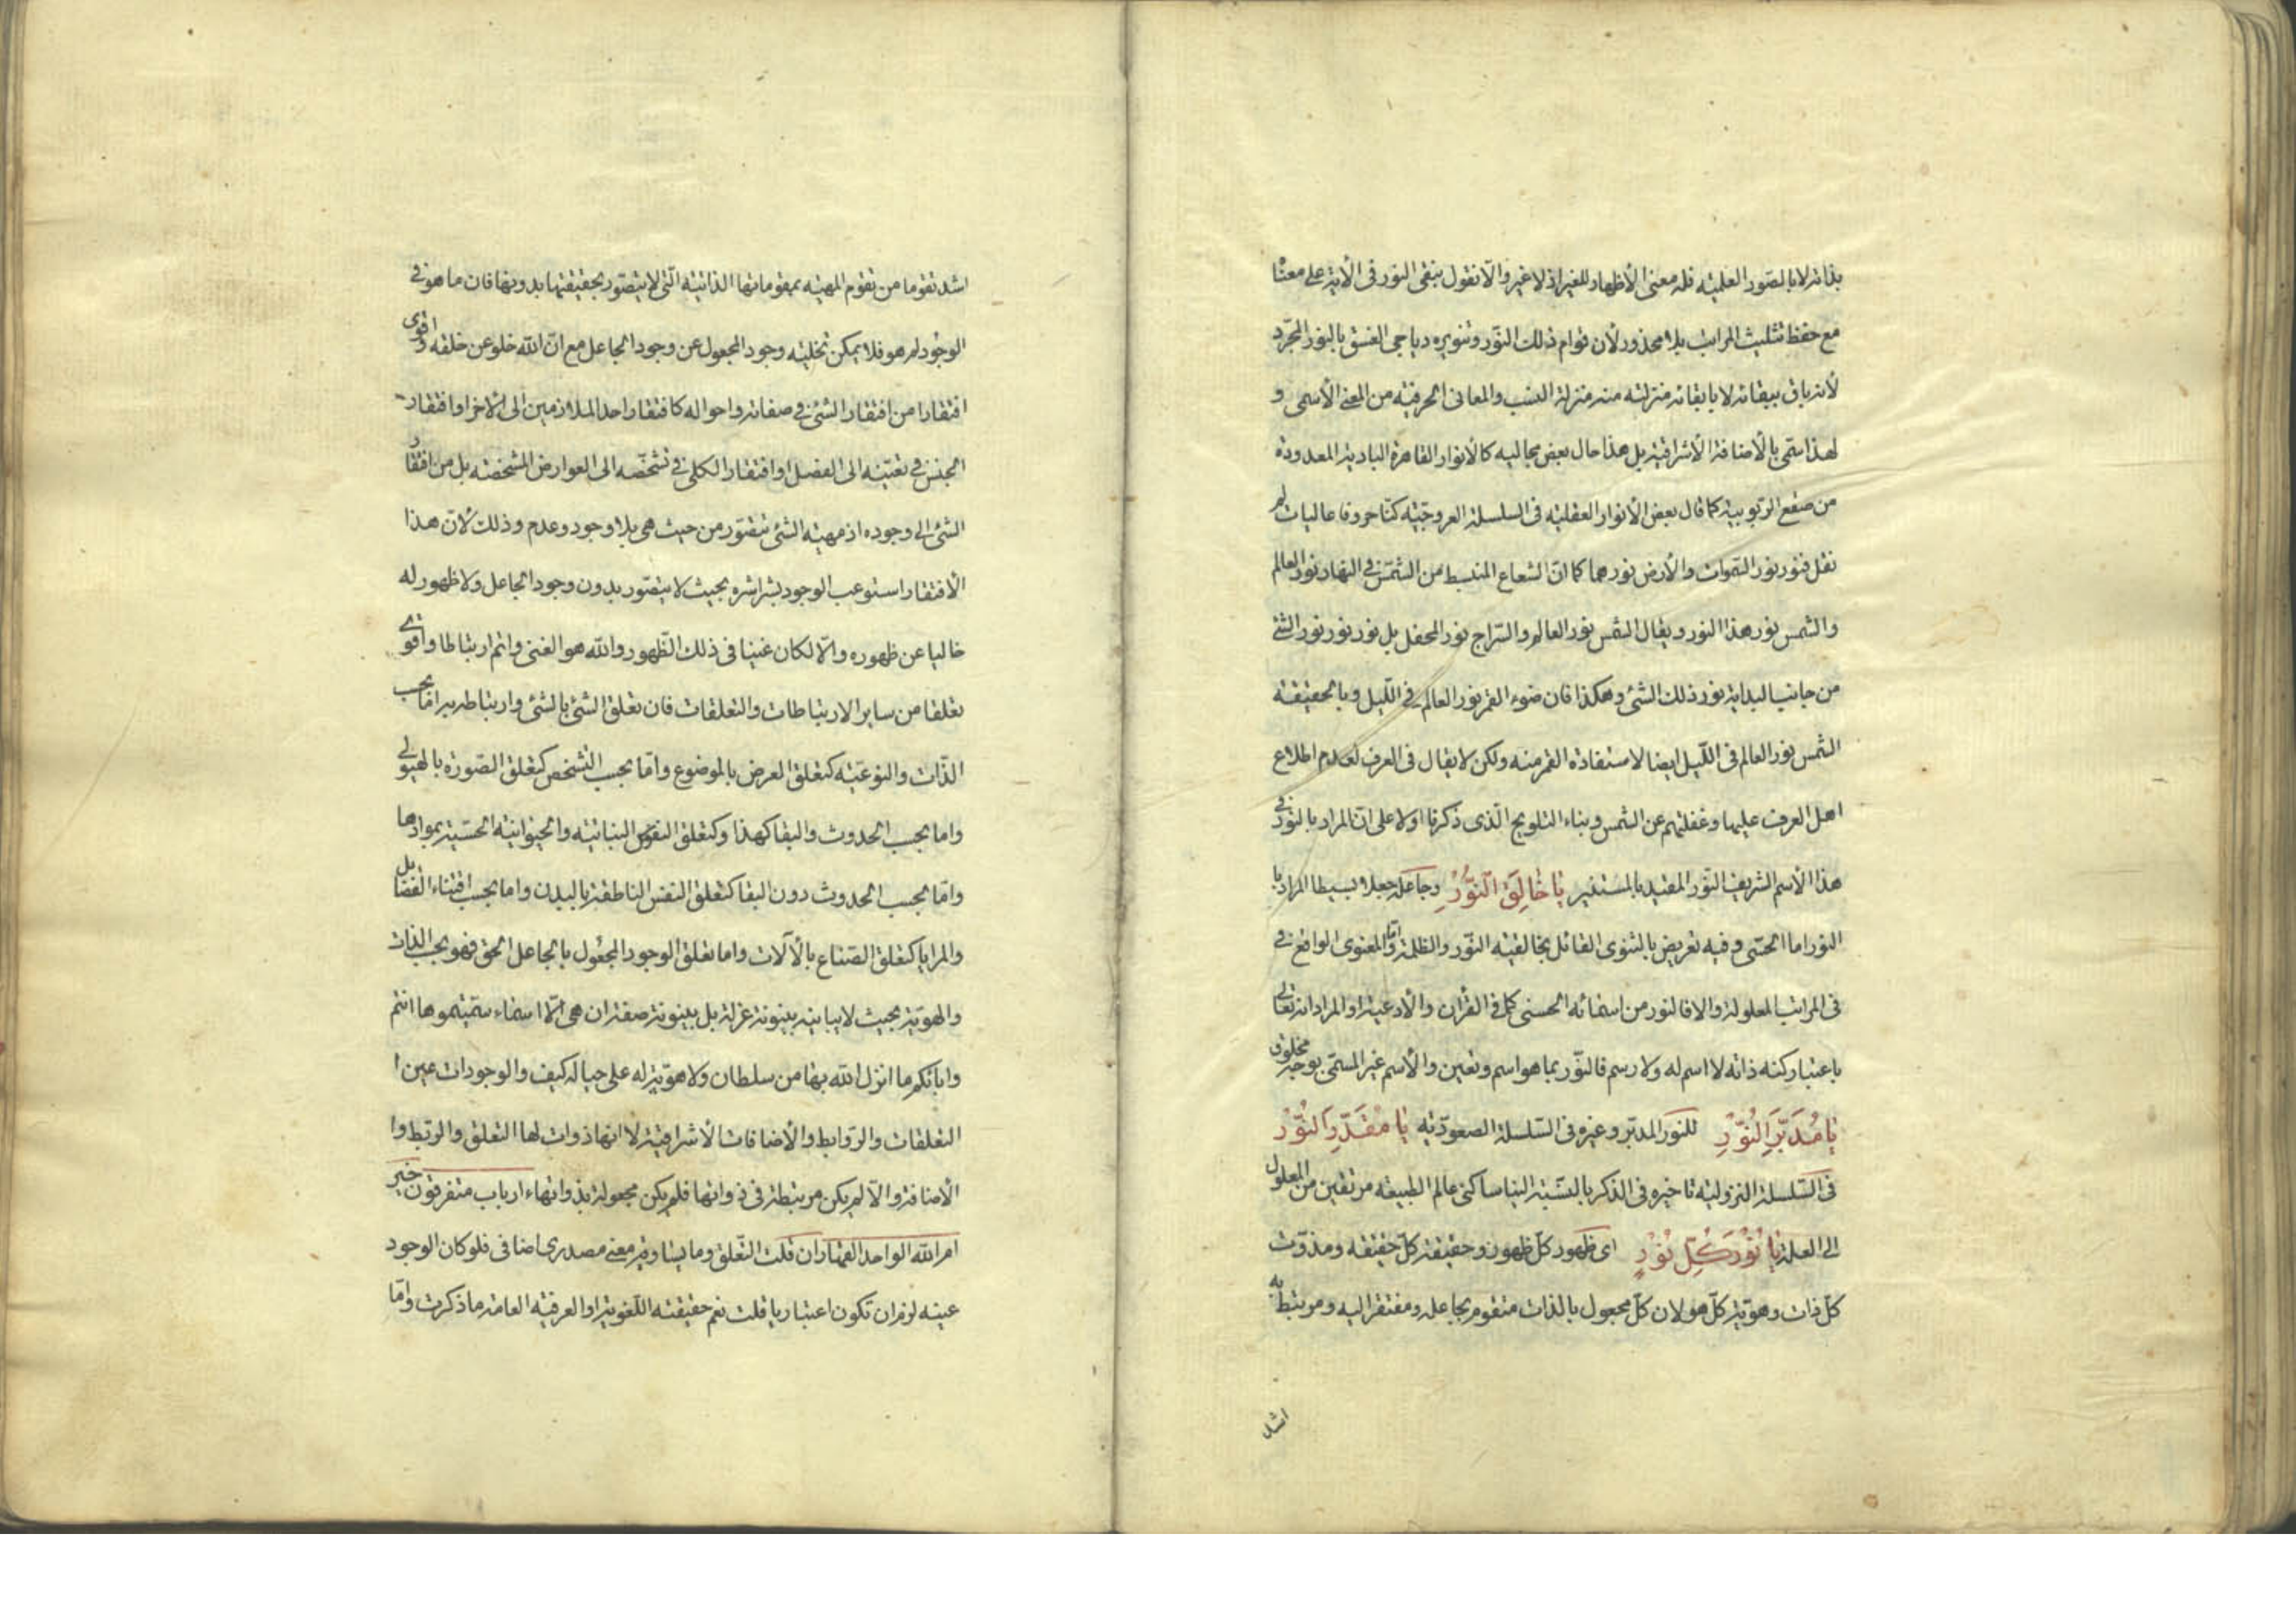 بذاته لا بالصور العلمیه فله معنی الأظهار للغیر اذ لا غیر والّا نقول بنفی النور فی الآیة علی معنا
مع حفظ تثلیث المراتب بلا محذور لأن قوام ذلك النّور وتنویره دیاجی الغسق بالنور المجرّد
لأنه باق ببقائه لا بابقائه منزلته منه منزلة النسب والمعانی الحرفیّه من المعنی الأسمی و
لهذا سمّی بالأضافة الأشراقیّة بل هذا حال بعض مجالیه کالأنوار القاهرة البادیة المعدودة
من صقع الربوبیة کما قال بعض الأنوار العقلیّه فی السلسلة العروجیّه کنّا حروفا عالیات لم
نقل فنور نور السّموات والأرض نورهما کما انّ الشعاع المنبسط من الشمس فی النهار نور العالم
والشمس نور هذا النور ویقال الشمس نور العالم والسّراج نور المحفل بل نور نور نور الشئ
من جانب البدایة نور ذلك الشئ وهکذا فان ضوء القمر نور العالم فی اللّیل وبالحقیقة
الشمس نور العالم فی اللّیل ایضا لاستفادة القمر منه ولکن لا یقال فی العرف لعدم اطلاع
اهل العرف علیها وغفلتهم عن الشمس وبناء التلویح الّذی ذکرنا اولا علی انّ المراد بالنور فی
هذا الأسم الشریف النّور المقید بالمستنیر یا خالِقَ النّورِ وجاعله جعلا بسیطا المراد با
النور اما الحسّی وفیه تعریض بالثنوی القائل بخالقیّه النّور والظلمة واما المعنوی الواقع فی
فی المراتب المعلولة والا فالنور من اسمائه الحسنی کما فی القرآن والأدعیة او المراد انه تعالی
باعتبار کنه ذاته لا اسم له ولا رسم فالنّور بما هو اسم وتعین والأسم غیر المسمّی بوجه مخلوق
یا مُدَبِّرَ النُّورِ للنور المدبّر وغیره فی السّلسلة الصعودیّه یا مُقَدِّرَ النُّورِ
فی السّلسلة النزولیّه تاخیره فی الذکر بالنسبة الینا ساکنی عالم الطبیعه مرتقین من المعلول
الی العلة یا نُورَ کُلِّ نُورٍ ای ظهور کلّ ظهور وحقیقة کلّ حقیقه ومذوّت
کلّ ذات وهویّة کلّ هو لان کلّ مجعول بالذات متقوم بجاعله ومفتقر الیه ومرتبط به
اشد
اشد تقوما من تقوم المهیّه بمقوماتها الذاتیّه الّتی لا یتصوّر بحقیقتها بدونها فان ما هو فی
الوجود لم هو فلا یمکن تخلیّه وجود المجعول عن وجود الجاعل مع انّ الله خلو عن خلقه واقوی
افتقارا من افتقار الشئ فی صفاته واحواله کافتقار احد المتلازمین الی الآخر او افتقار
الجنس فی تعیّنه الی الفصل او افتقار الکلی فی تشخّصه الی العوارض المشخصّه بل من افتقار
الشئ الی وجوده اذ مهیّه الشئ تتصّور من حیث هی بلا وجود وعدم وذلك لأنّ هذا
الأفتقار استوعب الوجود بشراشره بحیث لا یتصّور بدون وجود الجاعل ولا ظهور له
خالیا عن ظهوره والّا لکان غنیا فی ذلك الظّهور والله هو الغنی واتم ارتباطا واقوی
تعلقا من سایر الارتباطات والتعلقات فان تعلق الشئ بالشئ وارتباطه به اما بحسب
الذّات والنوعیّه کتعلق العرض بالموضوع وامّا بحسب التشخص کتعلق الصّورة بالهیولی
واما بحسب الحدوث والبقا کهذا وکتعلق النفوس النباتیّه والحیوانیّه الحسّیة بموادها
وامّا بحسب الحدوث دون البقا کتعلق النفس الناطقة بالبدن واما بحسب اقتناء الفضایل
والمزایا کتعلق الصّناع بالآلات واما تعلق الوجود المجعول بالجاعل الحق فهو بحسب الذات
والهویّة بحیث لا یباینه بینونة عزلة بل بینونة صفة ان هی الّا اسماء سمّیتموها انتم
واباؤکم ما انزل الله بها من سلطان ولا هویّة له علی حیاله کیف والوجودات عین ا
التعلقات والرّوابط والأضافات الأشراقیّة لا انها ذوات لها التعلق والربط وا
الأضافة والّا لم یکن مرتبطة فی ذواتها فلم یکن مجعولة بذواتها ءارباب متفرقون خیر
ام الله الواحد القهّار ان قلت التّعلق وما یساوقه معنی مصدری اضافی فلو کان الوجود
عینه لزم ان تکون اعتباریا قلت نعم حقیقته اللّغویة او العرفیّه العامة ما ذکرت وامّا